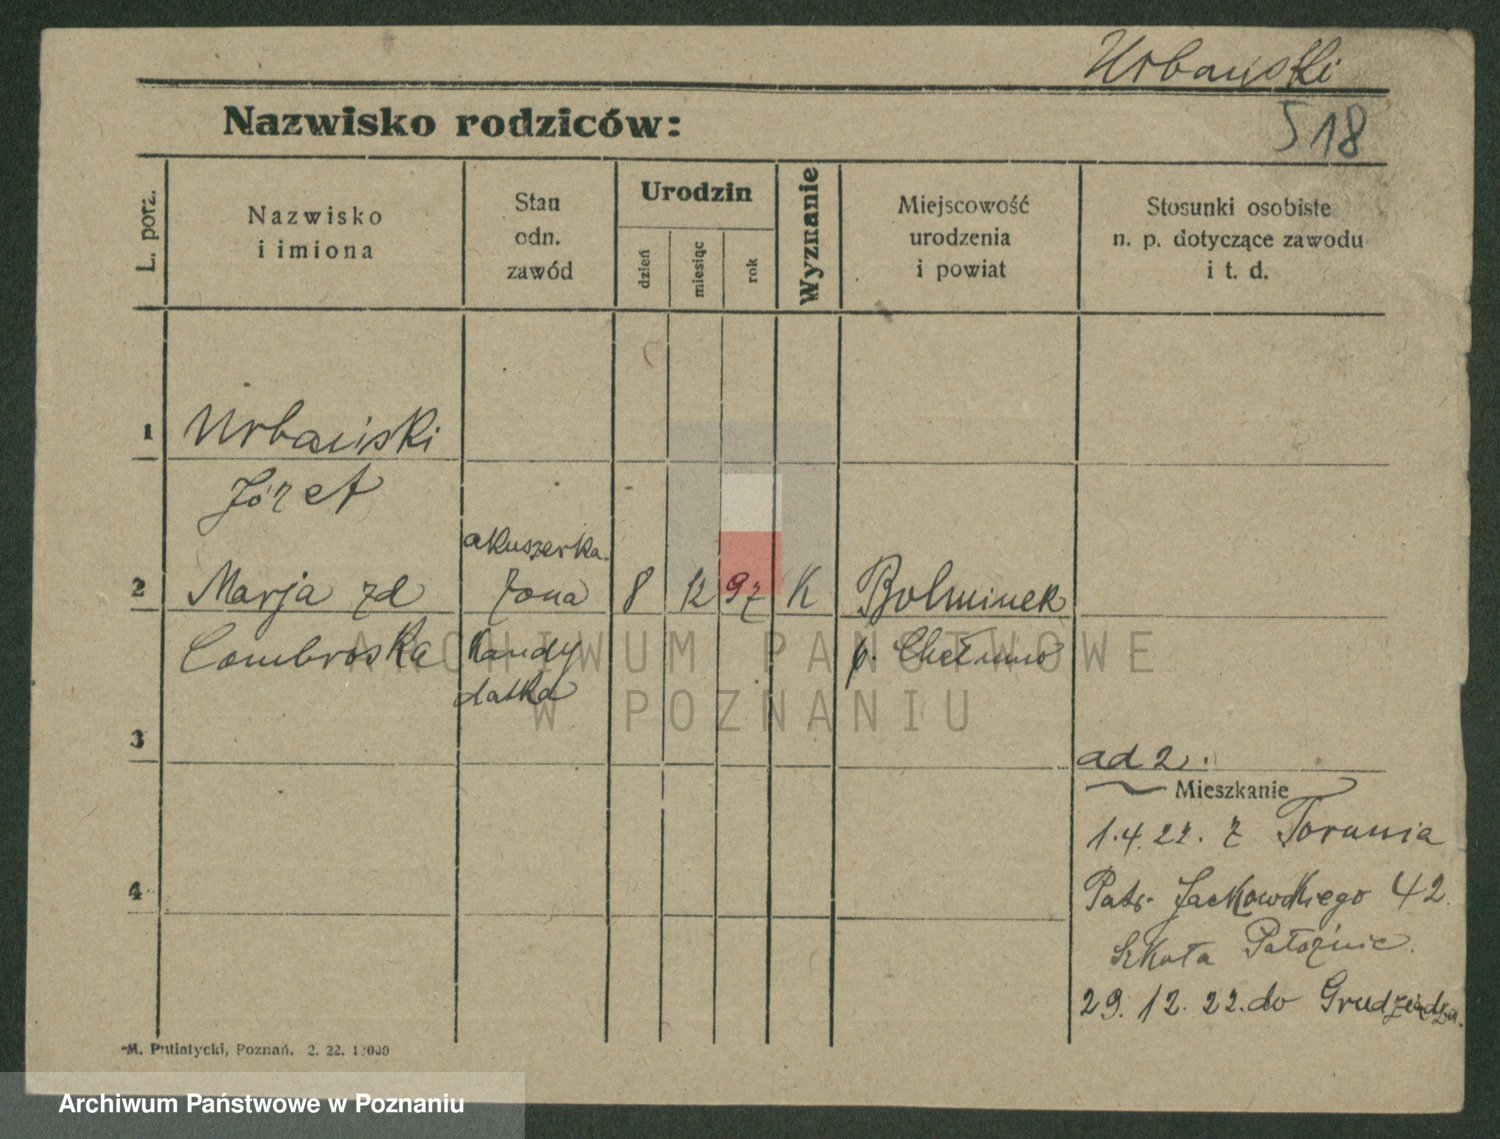 Urbański
Nazwisko rodziców:
518
L. porz.
Nazwisko
i imiona
Stan
odn.
zawód
Urodzin
dzień
miesiąc
rok
Wyznanie
Miejscowość
urodzenia
i powiat
Stosunki osobiste
n. p. dotyczące zawodu
i t. d.
1
Urbański
Józef
akuszerka
2 Marja zd żona 8 12 97 K Bolminek
Combroska kandy p. Chełmno
datka
3
ad 2.
Mieszkanie
1.4.22. z Torunia
4
Patr. Jackowskiego 42.
Szkoła Położnic.
29. 12. 22. do Grudziądza.
M. Putiatycki, Poznań. 2. 22.
ARCHIWUM PAŃSTWOWE
W POZNANIU
Archiwum Państwowe w Poznaniu